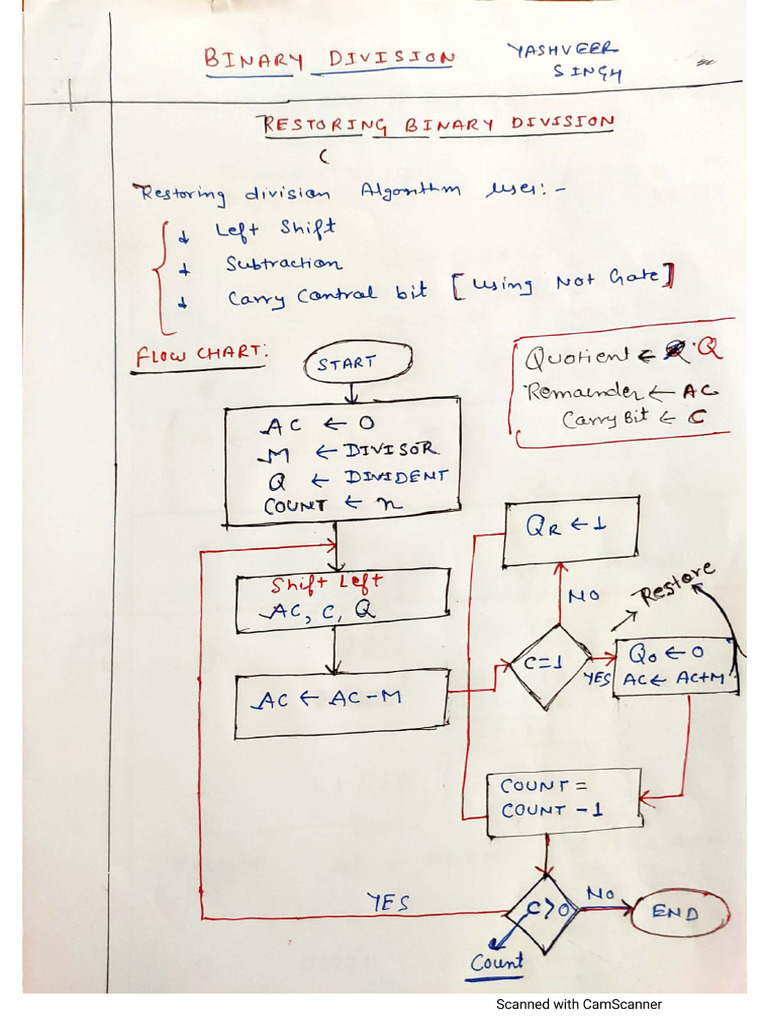 BINARY DIVISION
YASHVEER
SINGH
RESTORING BINARY DIVISION
(
Restoring division Algorithm uses:-
Left Shift
Subtraction
Carry Control bit [Using Not Gate]
FLOW CHART:
START
Quotient ← Q
Remainder ← AC
Carry Bit ← C
AC ← 0
M ← DIVISOR
Q ← DIVIDENT
COUNT ← n
QR ← 1
Shift Left
AC, C, Q
NO
Restore
C=1
YES
Q0 ← 0
AC ← AC+M
AC ← AC-M
COUNT =
COUNT -1
YES
C>0
NO
END
Count
Scanned with CamScanner